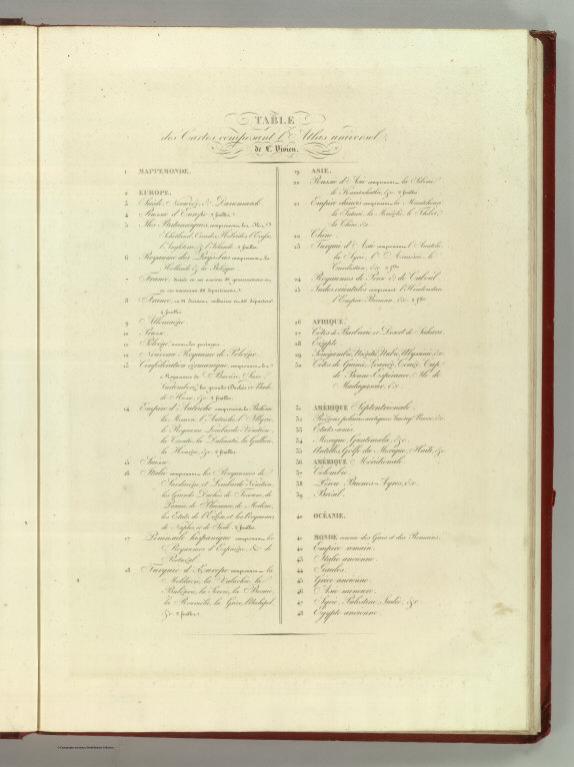 TABLE
des Cartes composant l'Atlas universel
de L. Vivien.
1 MAPPEMONDE.
2 EUROPE.
3 Suède, Norwège, & Danemarck.
4 Russie d'Europe 2 feuilles.
5 Iles Britanniques comprenant les Iles
Schetland, Orcades, Hébrides, l'Ecosse,
l'Angleterre & l'Irlande 2 feuilles.
6 Royaume des Pays-bas comprenant la
Hollande & la Belgique
7 France divisée en ses anciens gouvernements
et ses nouveaux 86 départements.
8 France, en divisions militaires 86 départem.
4 feuilles
9 Allemagne
10 Prusse
11 Pologne avant les partages
12 Nouveau Royaume de Pologne
13 Confédération germanique comprenant les
Royaumes de Bavière, Saxe,
Wurtemberg, les grands Duchés de Bade,
de Hesse, &c. 2 feuilles.
14 Empire d'Autriche comprenant la Bohême
la Moravie, l'Autriche, l'Illyrie,
le Royaume Lombardo-Vénitien,
la Dalmatie, la Gallicie,
la Hongrie, &c. 2 feuilles.
15 Suisse
16 Italie comprenant les Royaumes de
Sardaigne, et Lombardo-Vénitien,
les Grands Duchés de Toscane, de
Parme, de Plaisance, de Modène,
les Etats de l'Eglise, et les Royaumes
de Naples et de Sicile. 2 feuilles.
17 Péninsule hispanique comprenant les
Royaumes d'Espagne, & de
Portugal.
18 Turquie d'Europe comprenant la
Moldavie, la Valachie, la
Bulgarie, la Servie, la Bosnie,
la Roumélie, la Grèce, l'Archipel
&c. 2 feuilles.
19 ASIE.
20 Russie d'Asie comprenant la Sibérie,
le Kamtchatka, &c. 2 feuilles
21 Empire chinois comprenant la Mantchourie
la Tartarie, la Mongolie, le Thibet,
la Chine, &c.
22 Chine
23 Turquie d'Asie comprenant l'Anatolie
la Syrie, l'Arménie, le
Curdistan, &c. 2 flles
24 Royaumes de Perse & de Caboul
25 Indes orientales comprenant l'Hindoustan
l'Empire Birman, &c. 2 flles
26 AFRIQUE.
27 Côtes de Barbarie et Désert de Sahara.
28 Egypte
29 Sénégambie, Nigritie, Nubie, Abyssinie, &c.
30 Côtes de Guinée, Loango, Congo, Cap
de Bonne Espérance, Ile de
Madagascar, &c.
31 AMÉRIQUE Septentrionale.
32 Régions polaires arctiques &c.
33 Etats-unis
34 Mexique, Guatemala, &c.
35 Antilles, Golfe du Mexique, Haïti, &c.
36 AMÉRIQUE Méridionale
37 Colombie
38 Pérou, Buenos-Ayres, &c.
39 Brésil.
40 OCÉANIE.
41 MONDE connu des Grecs et des Romains.
42 Empire romain.
43 Italie ancienne.
44 Gaules.
45 Grèce ancienne.
46 Asie mineure.
47 Syrie, Palestine, Judée, &c.
48 Egypte ancienne.